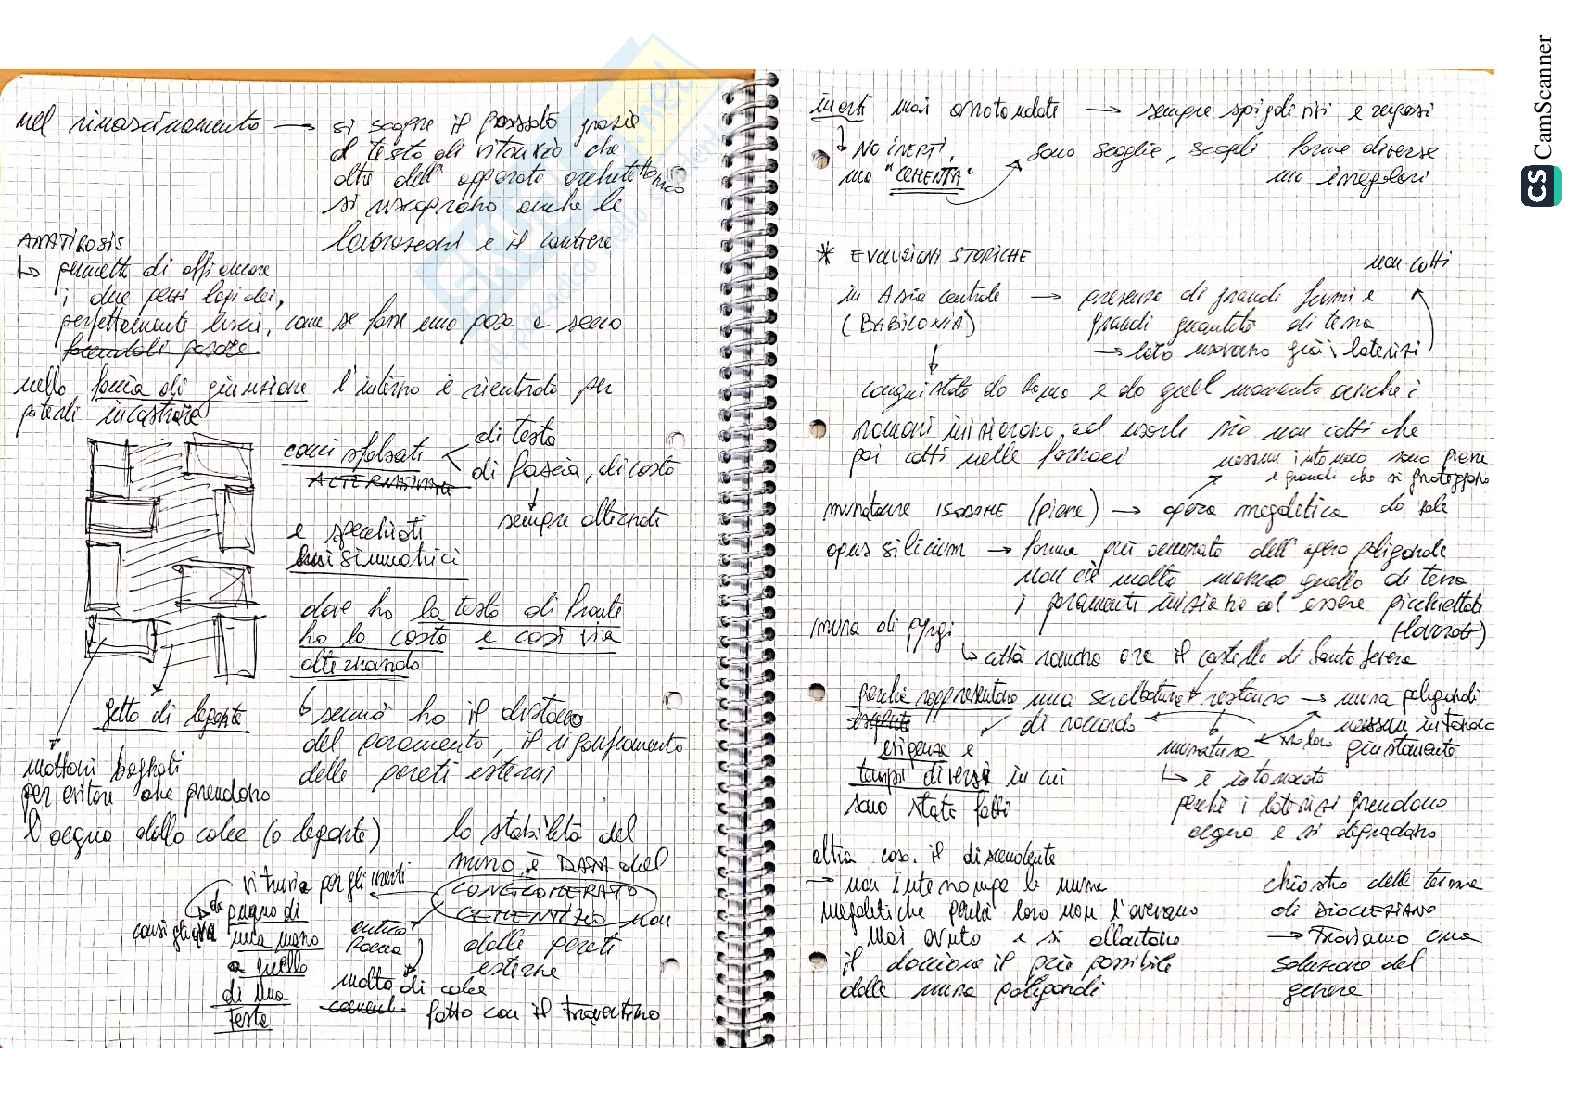 nel rinascimento → si scopre il passato grazie
al testo di vitruvio che
oltre dell'apparato architettonico
si riscoprono anche le
lavorazioni e il cantiere
ANATIROSIS
↳ permette di affiancare
i due pezzi lapidei,
perfettamente lisci, come se fosse uno posa a secco
facendoli posare
nella faccia di giunzione l'interno è rientrato per
poterli incastrare
corsi sfalsati < di testa
ALTERNISSIMA di fascia, di costa
↓
sempre alternati
e specchiati
quasi simmetrici
dove ho la testa di fronte
ho la costa e così via
alternando
getto di legante
↳ sennò ho il distacco
del paramento, il rigonfiamento
delle pareti esterni
mattoni bagnati
per evitare che prendono
l'acqua dalla calce (o legante)
la stabilità del
muro è DATA dal
CONGLOMERATO
CEMENTIZIO non
dalle pareti
esterne
vitruvio per gli inerti
consigliava da pugno di
una mano
a quello
di una
testa
antica
Roccia
molto di calce
fatto con il travertino
inerti mai arrotondate → sempre spigolosi e rugosi
↓ NO INERTI,
ma "CEMENTA"
sono scaglie, scapoli forme diverse
ma irregolari
* EVOLUZIONI STORICHE
non cotti
in Asia centrale → presenza di grandi fiumi e
(BABILONIA) grandi quantità di terra
→ loro usavano già i laterizi
↓
conquistata da Roma e da quel momento anche i
romani iniziarono ad usarli sia non cotti che
poi cotti nelle fornaci
nessun intonaco sono pietre
e grandi che si proteggono
murature ISODOME (piane) → opera megalitica da sole
opus siliceum → forma più arrotondata dell'opera poligonale
non c'è molta manca quella di terra
i paramenti iniziano ad essere picchiettati
(lavorati)
mura di pyrgi
↳ città romana ora il castello di Santa Severa
perché rappresentano una scialbatura restauro → mura poligonali
esigenze e di raccordo nessun intonaco
muratura giustamente
tempi diversi in cui ↳ è intonacato
sono state fatti perché i laterizi prendono
acqua e si degradano
altra cosa, il discendente
→ non interrompe le mura
megalitiche perché loro non l'avevano
mai avuto e si allontana
il doccione il più possibile
dalle mura poligonali
chiostro delle terme
di DIOCLEZIANO
→ Troviamo una
soluzione del
genere
CS CamScanner